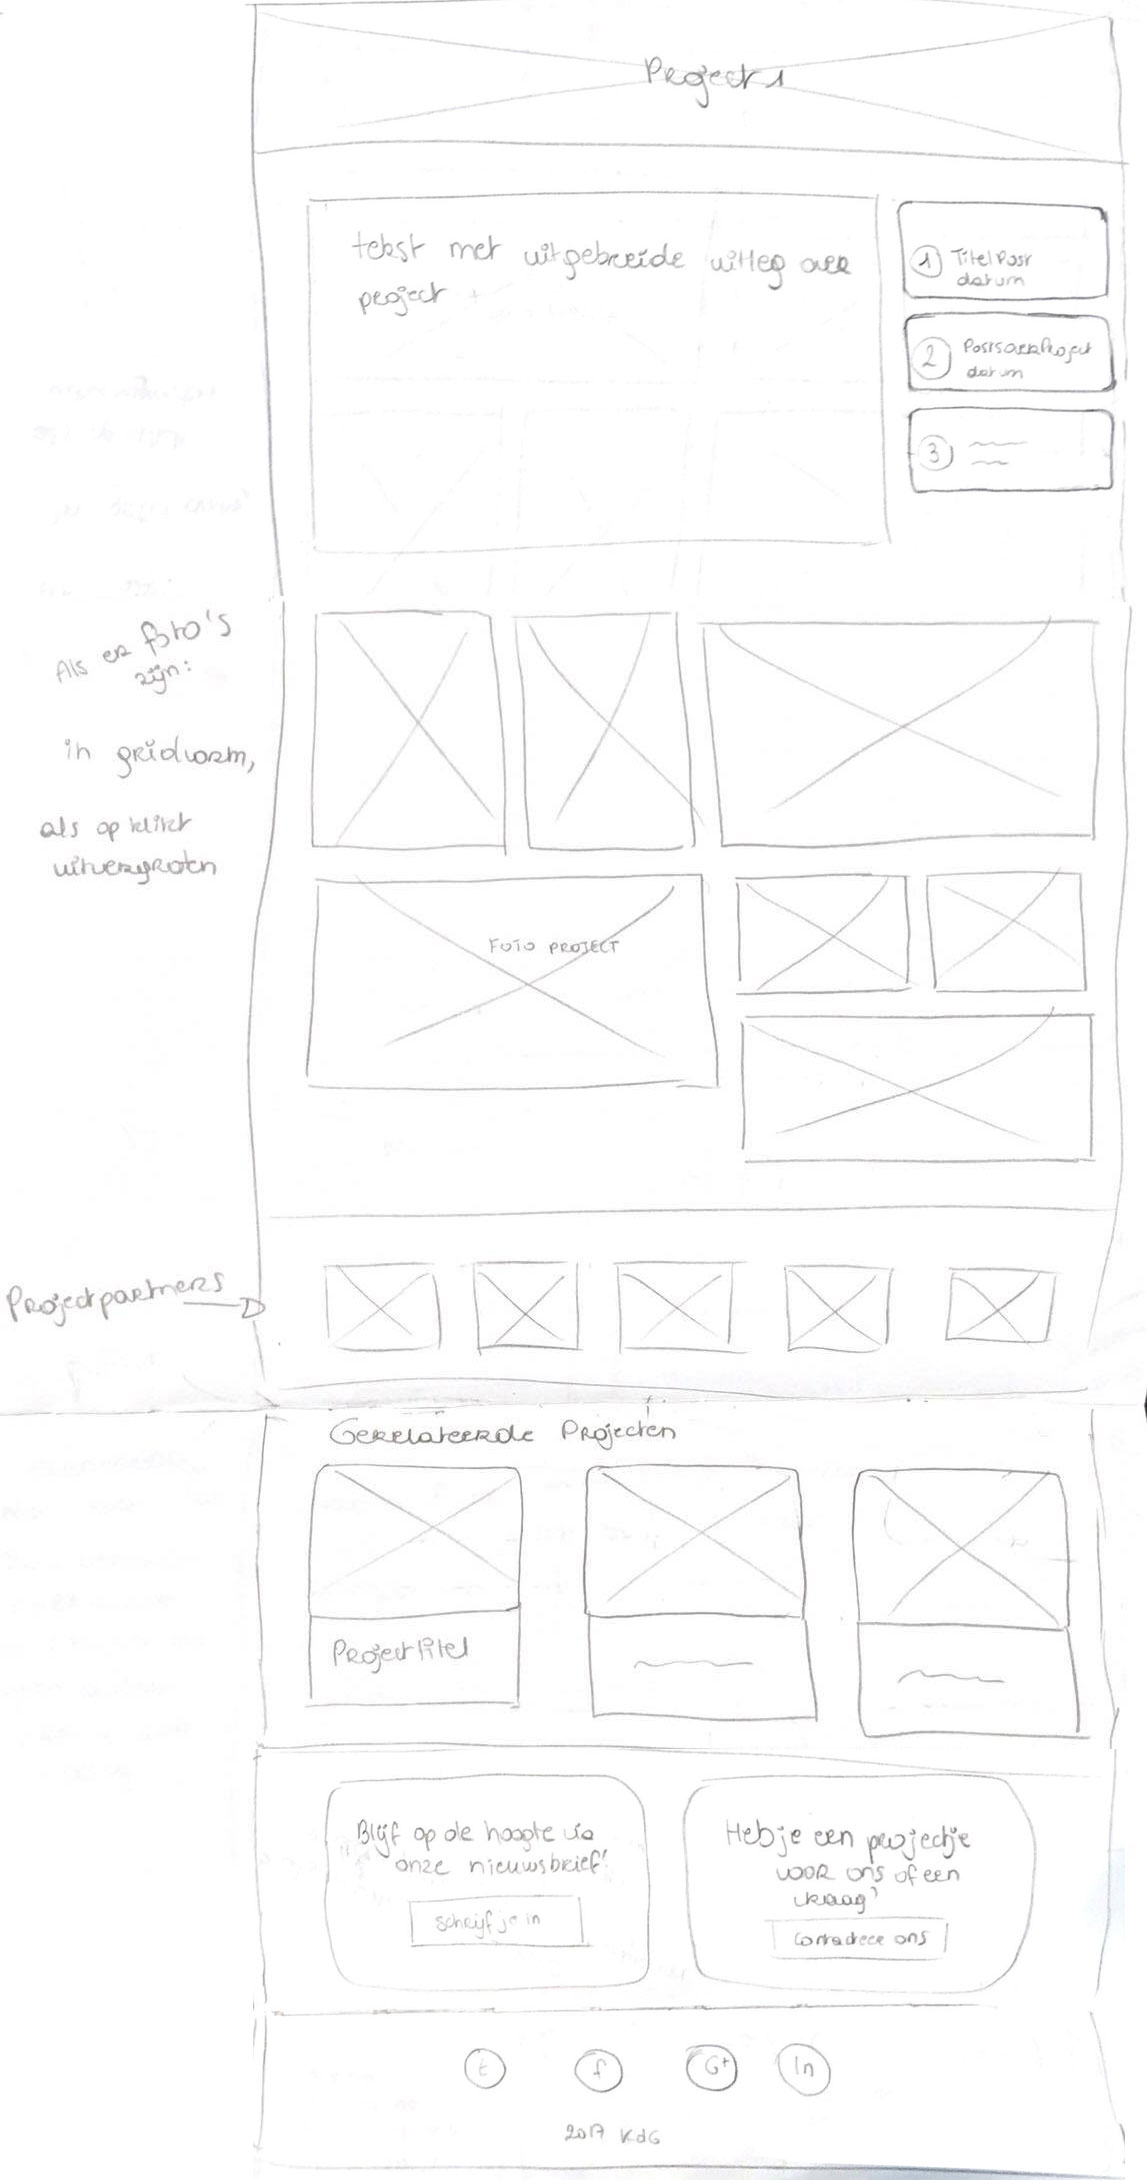 Project 1
tekst met uitgebreide uitleg over
project
1 Titel Post
datum
2 Posts over Project
datum
3
Als er foto's
zijn:
in gridvorm,
als op klikt
uitvergroten
FOTO PROJECT
Projectpartners
Gerelateerde Projecten
Projecttitel
Blijf op de hoogte via
onze nieuwsbrief!
Schrijf je in
Heb je een projectje
voor ons of een
vraag?
Contacteer ons
t f G+ In
2017 KdG